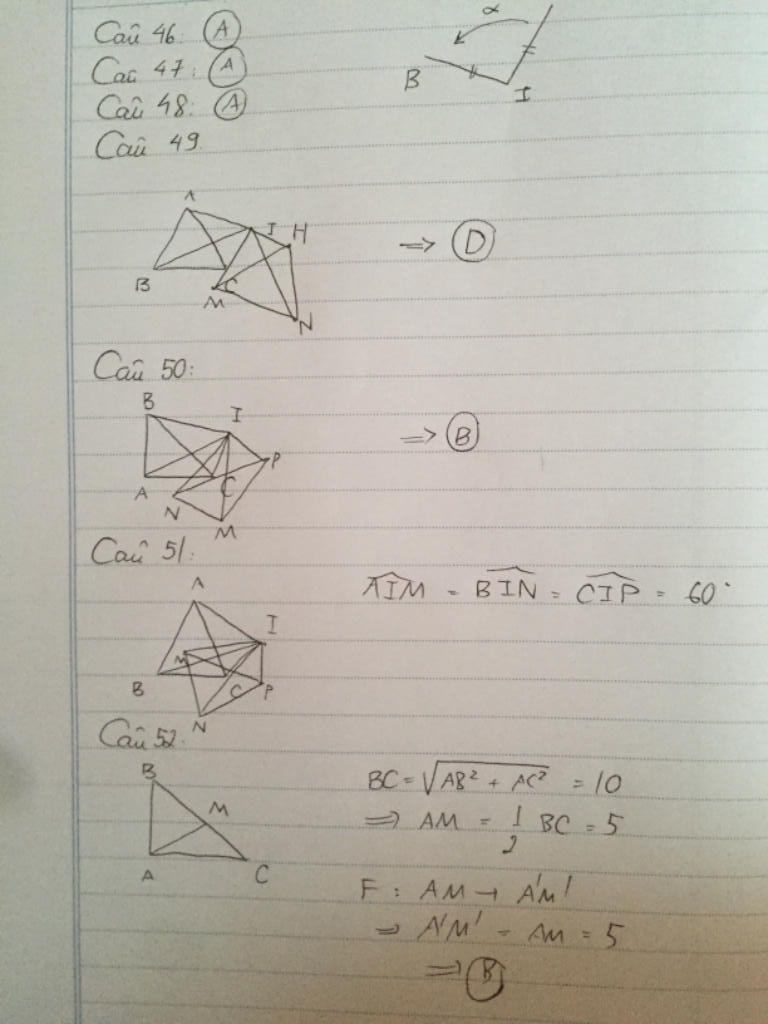 Câu 46: A
Câu 47: A
Câu 48: A
α
B
I
Câu 49.
A
I H
B
M C
N
=> D
Câu 50:
B
I
P
A
N
C
M
=> B
Câu 51:
A
I
M
B
C
P
N
AIM = BIN = CIP = 60°
Câu 52:
B
M
A
C
BC = √AB² + AC² = 10
=> AM = 1/2 BC = 5
F : AM → A'M'
=> A'M' = AM = 5
=> B